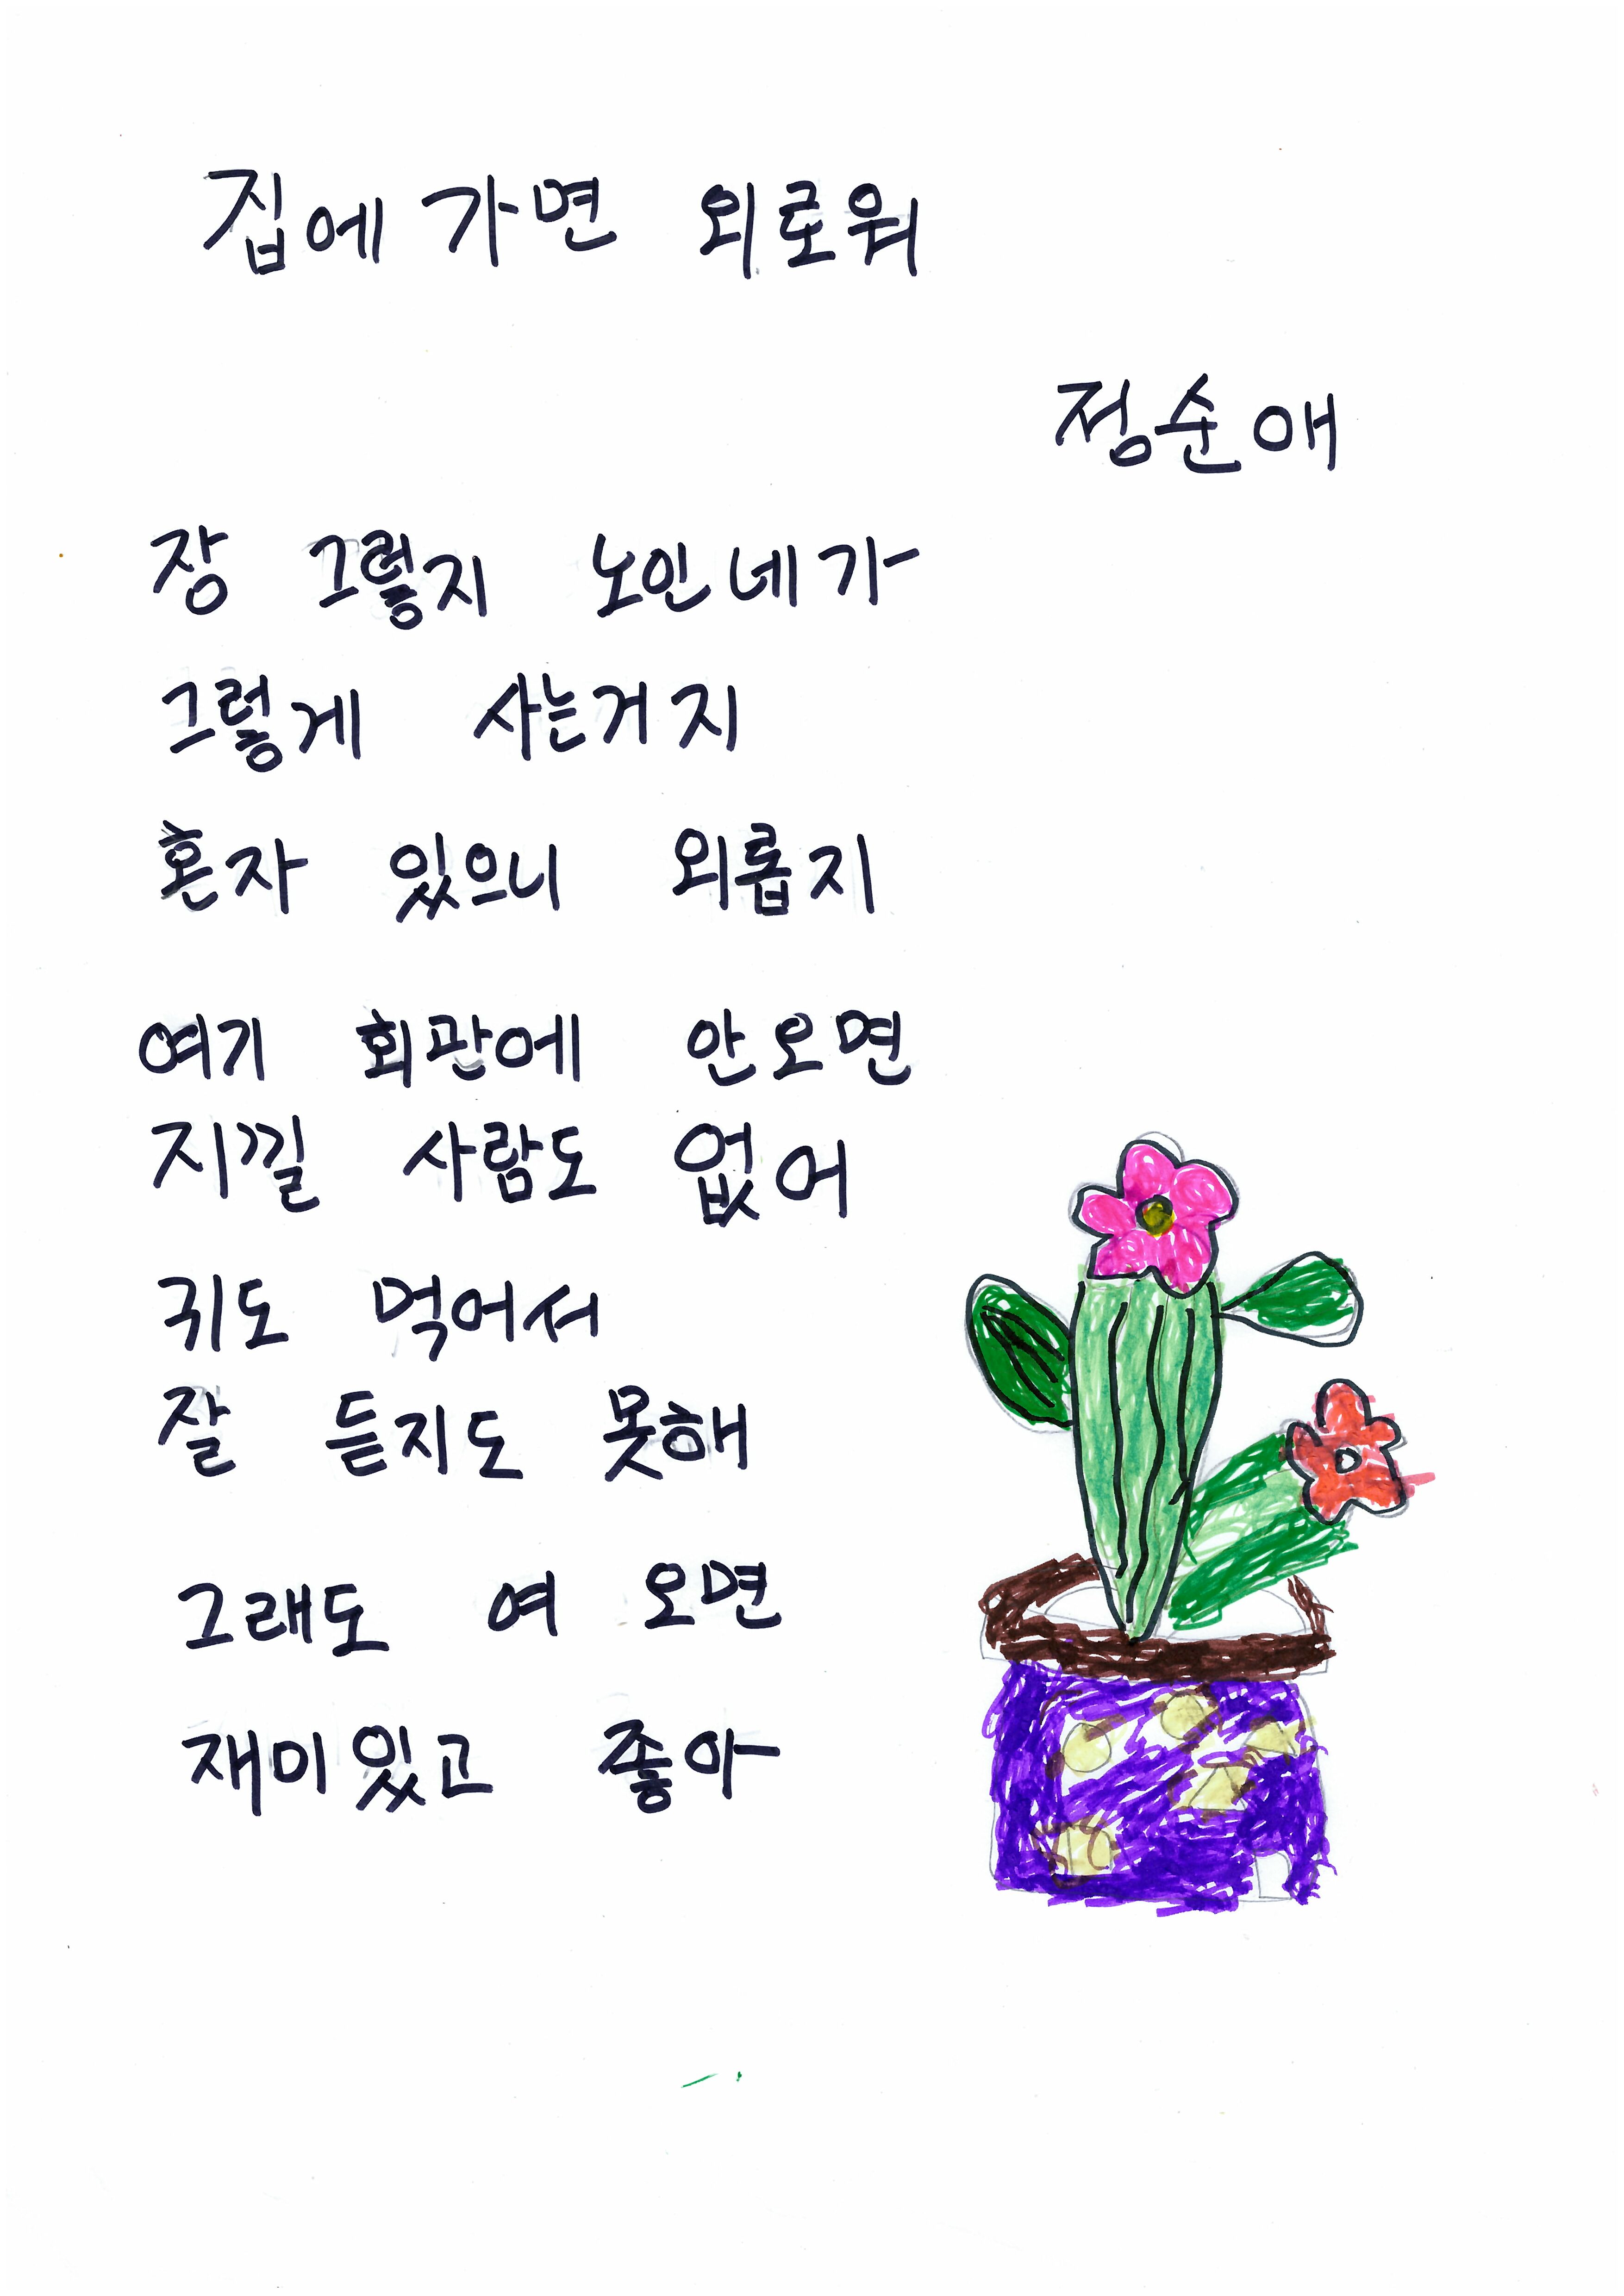 집에 가면 외로워
정순애
장 그렇지 노인네가
그렇게 사는거지
혼자 있으니 외롭지
여기 회관에 안오면
지낄 사람도 없어
귀도 먹어서
잘 듣지도 못해
그래도 여 오면
재미있고 좋아